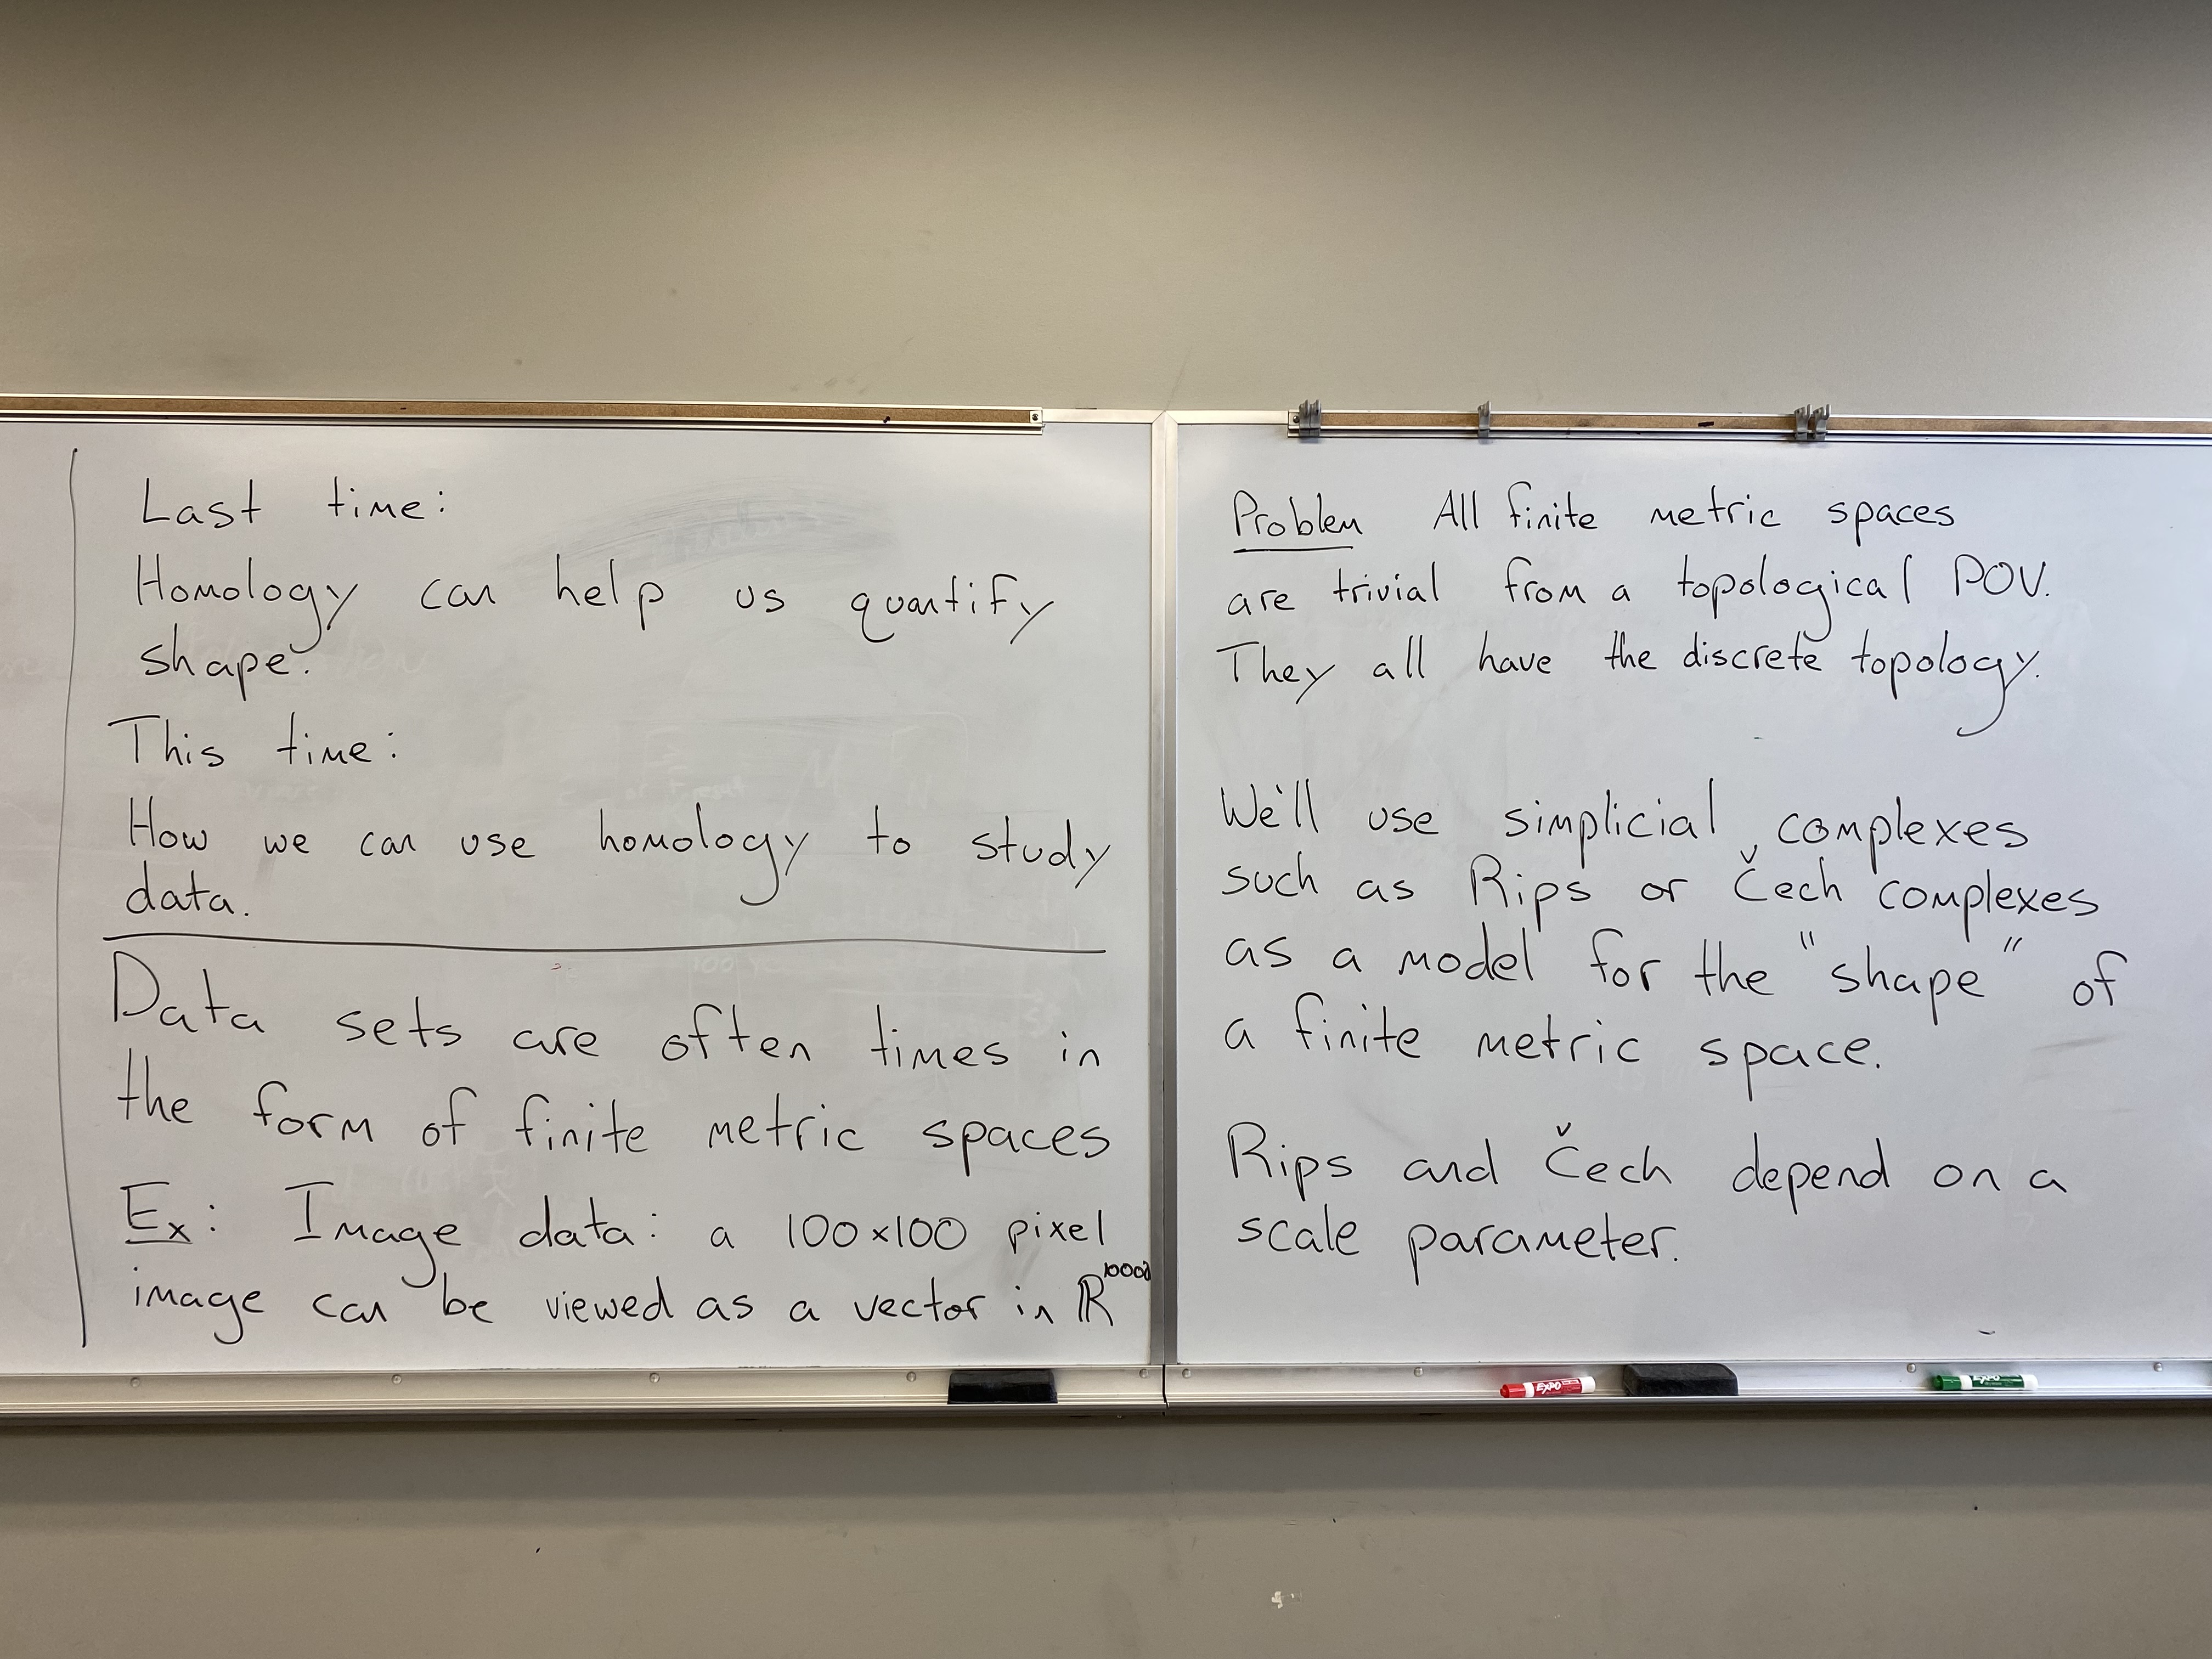 Last time:
Homology can help us quantify
shape.
This time:
How we can use homology to study
data.
Data sets are often times in
the form of finite metric spaces
Ex: Image data: a 100×100 pixel
image can be viewed as a vector in ℝ¹⁰⁰⁰⁰
Problem All finite metric spaces
are trivial from a topological POV.
They all have the discrete topology.
We'll use simplicial complexes
such as Rips or Čech complexes
as a model for the "shape" of
a finite metric space.
Rips and Čech depend on a
scale parameter.
EXPO
EXPO